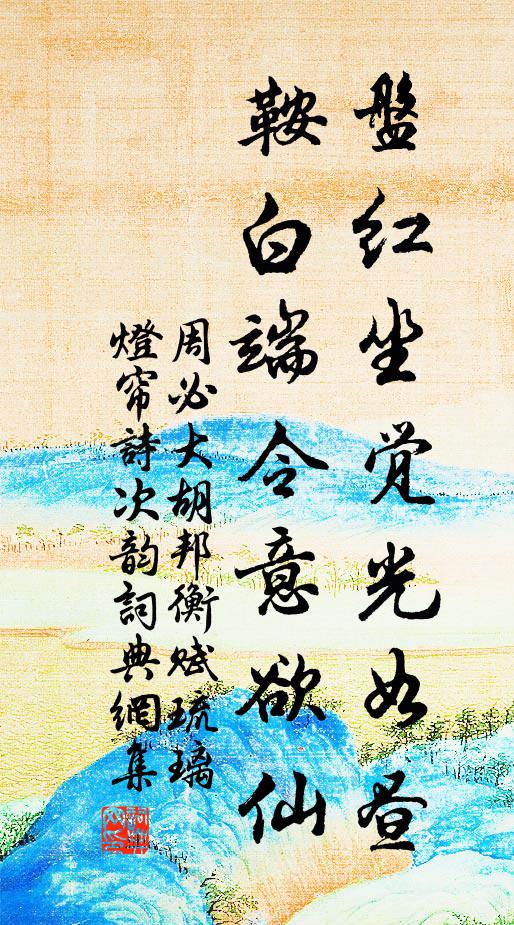 盤紅坐覺光如晝
鞍白端令意欲仙
周必大胡邦衡賦琉璃
燈帘詩次韵詞典網集